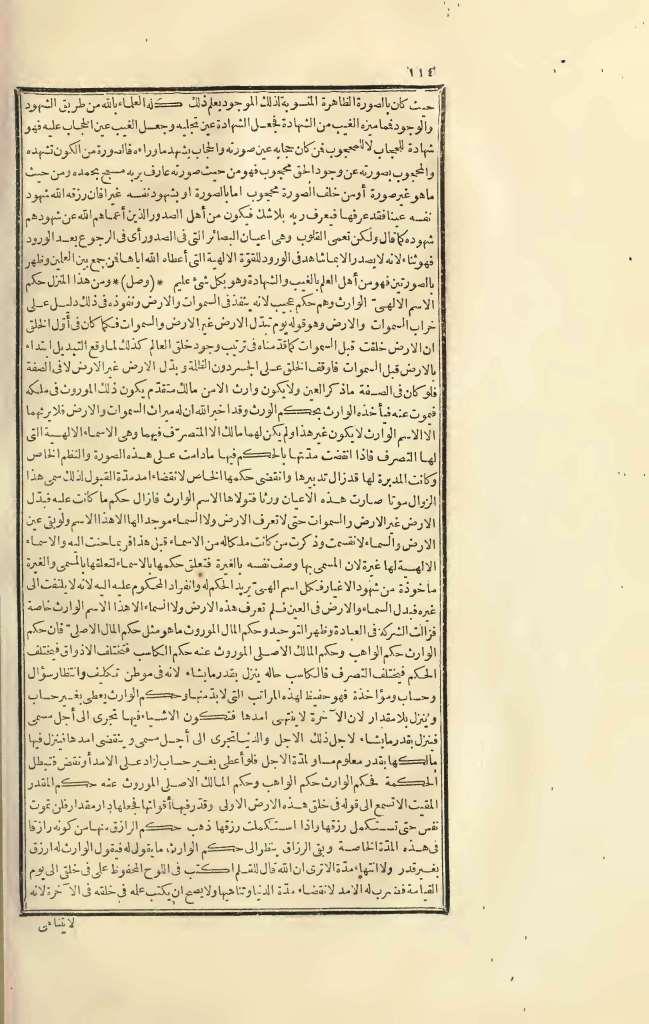 ١١٤
حيث كان بالصورة الظاهرة المنسوبة لذلك الموجود يعلم ذلك كله العلماء بالله من طريق الشهود
والوجود فما ميزه الغيب من الشهادة فجعل الشهادة عين تجليه وجعل الغيب عين الحجاب عليه فهو
شهادة للحجاب لا للمحجوب فمن كان حجابه عين صورته والحجاب يشهد ما وراءه فالصورة من الكون تشهده
والمحجوب بصورته عن وجود الحق محجوب فهو من حيث صورته عارف بربه مسبح بحمده ومن حيث
ما هو غير صورة أو من خلف الصورة محجوب اما بالصورة او بشهود نفسه غيرا فان رزقه الله شهود
نفسه عينا فقد عرفها فيعرف ربه بلا شك فيكون من أهل الصدور الذين أعماهم الله عن شهودهم
شهوده كما قال ولكن تعمى القلوب وهى اعيان البصائر التى فى الصدور أى فى الرجوع بعد الورود
فهو ثناء لانه لا يصدر الا بما شاهد فى الورود للقوة الالهية التى أعطاه الله اياها فمن جمع بين العلمين وظهر
بالصورتين فهو من أهل العلم بالغيب والشهادة وهو بكل شئ عليم * (وصل) * ومن هذا المنزل حكم
الاسم الالهى الوارث وهم حكم عجيب لانه ينفذ فى السموات والارض ونفوذه فى ذلك دليل على
خراب السموات والارض وهو قوله يوم تبدل الارض غير الارض والسموات فكما كان فى أول الخلق
ان الارض خلقت قبل السموات كما قدمناه فى ترتيب وجود خلق العالم كذلك لما وقع التبديل ابتداء
بالارض قبل السموات فاوقف الخلق على الجسر دون الظلمة وبدل الارض غير الارض لا فى الصفة
فلو كان فى الصفة ما ذكر العين ولا يكون وارث الا من مالك متقدم يكون ذلك الموروث فى ملكه
فيموت عنه فيأخذه الوارث بحكم الورث وقد اخبر الله ان له ميراث السموات والارض فلا يرثهما
الا الاسم الوارث لا يكون غير هذا ولم يكن لهما مالك الا المتصرف فيهما وهى الاسماء الالهية التى
لها التصرف فاذا انقضت مدتها بالحكم فيها ما دامت على هذه الصورة والنظم الخاص
وكانت المدبرة لها قد زال تدبيرها وانقضى حكمها الخاص لانقضاء امد مدة القبول لذلك سمى هذا
الزوال موتا صارت هذه الاعيان ورثا فتولاها الاسم الوارث فازال حكم ما كانت عليه فبدل
الارض غير الارض والسموات حتى لا تعرف الارض ولا السماء موجدا لها الا هذا الاسم ولو بقى عين
الارض والسماء لانقسمت وذكرت من كانت ملكا له من الاسماء قبل هذا فربما حنت اليه والاسماء
الالهية لها غيرة لان المسمى بها وصف نفسه بالغيرة فتعلق حكمها بالاسماء لتعلقها بالمسمى والغيرة
مأخوذة من شهود الاغيار فكل اسم الهى يريد الحكم له وانفراد المحكوم عليه اليه لانه لا يلتفت الى
غيره فبدل السماء والارض فى العين فلم تعرف هذه الارض ولا السماء الا هذا الاسم الوارث خاصة
فزالت الشركة فى العبادة وظهر التوحيد وحكم المال الموروث ما هو مثل حكم المال الاصلى فان حكم
الوارث حكم الواهب وحكم المالك الاصلى الموروث عنه حكم الكاسب فتختلف الاذواق فيختلف
الحكم فيختلف التصرف فالكاسب حاله ينزل بقدر ما يشاء لانه فى موطن تكليف وانتظار سؤال
وحساب ومؤاخذة فهو حفيظ لهذه المراتب التى لا بد منها وحكم الوارث يعطى بغير حساب
وينزل بلا مقدار لان الآخرة لا ينتهى امدها فتكون الاشياء فيها تجرى الى أجل مسمى
فينزل بقدر ما يشاء لاجل ذلك الاجل والدنيا تجرى الى أجل مسمى وينقضى امدها فينزل فيها
مالكها بقدر معلوم مساو لمدة الاجل فلو أعطى بغير حساب لزاد على الامد أو نقص فتبطل
الحكمة فحكم الوارث حكم الواهب وحكم المالك الاصلى الموروث عنه حكم المقدر
المقيت الا تسمع الى قوله فى خلق هذه الارض الاولى وقدر فيها أقواتها فجعلها دار مقدار فلن تموت
نفس حتى تستكمل رزقها واذا استكملت رزقها ذهب حكم الرازق منها من كونه رازقا
فى هذه المدة الخاصة وبقى الرزاق ينظر الى حكم الوارث ما يقول له فيقول الوارث له ارزق
بغير قدر ولا انتهاء مدة الا ترى ان الله قال للقلم اكتب فى اللوح المحفوظ على فى خلقى الى يوم
القيامة فضرب له الامد لانقضاء مدة الدنيا وتناهيها ولا يصح ان يكتب علمه فى خلقه فى الآخرة لانه
لا يتناهى